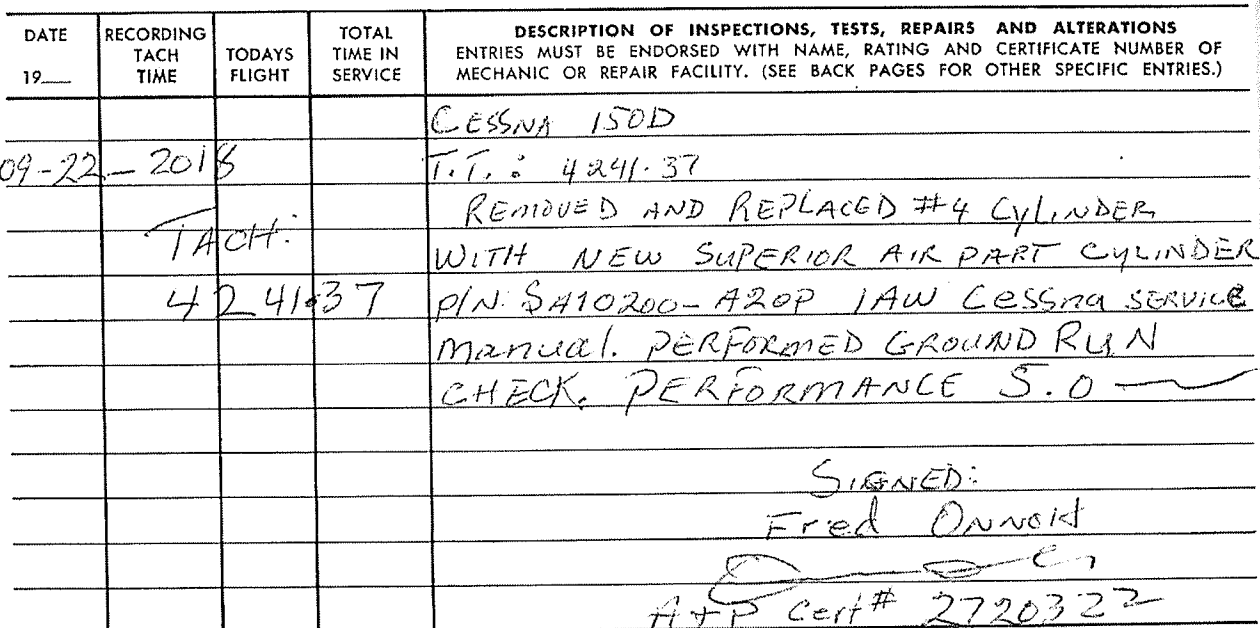 DATE
19
RECORDING
TACH
TIME
TODAYS
FLIGHT
TOTAL
TIME IN
SERVICE
DESCRIPTION OF INSPECTIONS, TESTS, REPAIRS AND ALTERATIONS
ENTRIES MUST BE ENDORSED WITH NAME, RATING AND CERTIFICATE NUMBER OF
MECHANIC OR REPAIR FACILITY. (SEE BACK PAGES FOR OTHER SPECIFIC ENTRIES.)
CESSNA 150D
09-22-2018 T.T.: 4241.37
REMOVED AND REPLACED #4 CYLINDER
TACH:
WITH NEW SUPERIOR AIR PART CYLINDER
4241.37 P/N: SA10200-A20P IAW Cessna SERVICE
manual. PERFORMED GROUND RUN
CHECK. PERFORMANCE 5.0
SIGNED:
Fred
A+P Cert# 2720322